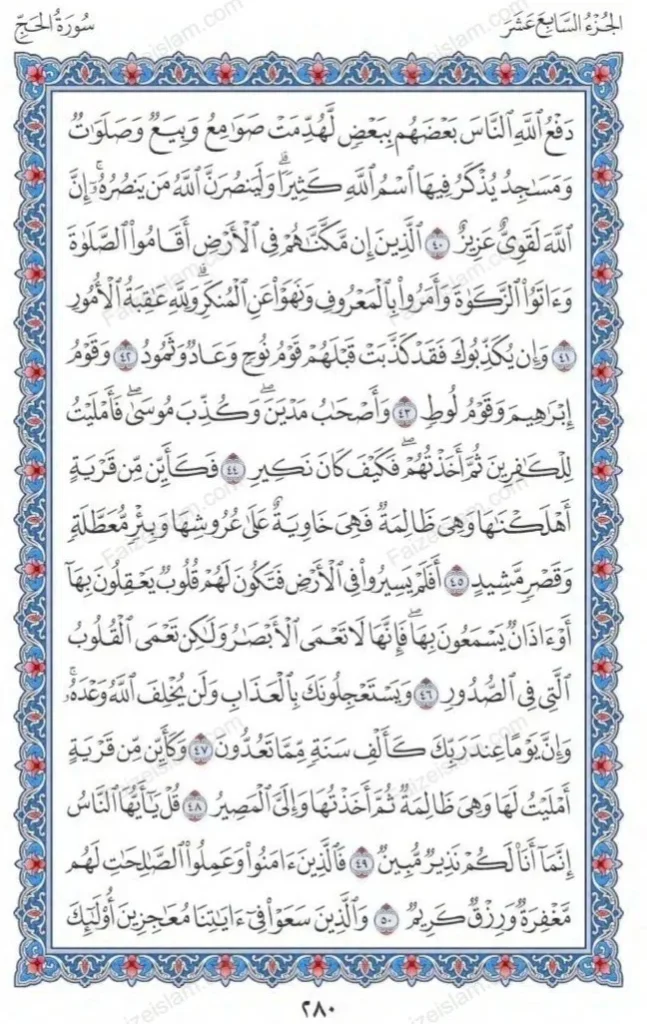 الجُزْءُ السَّابِعَ عَشَرَ سُورَةُ الحَجِّ
دَفْعُ اللَّهِ النَّاسَ بَعْضَهُم بِبَعْضٍ لَّهُدِّمَتْ صَوَامِعُ وَبِيَعٌ وَصَلَوَاتٌ
وَمَسَاجِدُ يُذْكَرُ فِيهَا اسْمُ اللَّهِ كَثِيرًا ۗ وَلَيَنصُرَنَّ اللَّهُ مَن يَنصُرُهُ ۚ إِنَّ
اللَّهَ لَقَوِيٌّ عَزِيزٌ ٤٠ الَّذِينَ إِن مَّكَّنَّاهُمْ فِي الْأَرْضِ أَقَامُوا الصَّلَاةَ
وَءَاتَوُا الزَّكَوٰةَ وَأَمَرُوا بِالْمَعْرُوفِ وَنَهَوْا عَنِ الْمُنكَرِ ۗ وَلِلَّهِ عَاقِبَةُ الْأُمُورِ
٤١ وَإِن يُكَذِّبُوكَ فَقَدْ كَذَّبَتْ قَبْلَهُمْ قَوْمُ نُوحٍ وَعَادٌ وَثَمُودُ ٤٢ وَقَوْمُ
إِبْرَاهِيمَ وَقَوْمُ لُوطٍ ٤٣ وَأَصْحَابُ مَدْيَنَ ۖ وَكُذِّبَ مُوسَىٰ ۖ فَأَمْلَيْتُ
لِلْكَافِرِينَ ثُمَّ أَخَذْتُهُمْ ۖ فَكَيْفَ كَانَ نَكِيرِ ٤٤ فَكَأَيِّن مِّن قَرْيَةٍ
أَهْلَكْنَاهَا وَهِيَ ظَالِمَةٌ فَهِيَ خَاوِيَةٌ عَلَىٰ عُرُوشِهَا وَبِئْرٍ مُّعَطَّلَةٍ
وَقَصْرٍ مَّشِيدٍ ٤٥ أَفَلَمْ يَسِيرُوا فِي الْأَرْضِ فَتَكُونَ لَهُمْ قُلُوبٌ يَعْقِلُونَ بِهَا
أَوْ ءَاذَانٌ يَسْمَعُونَ بِهَا ۖ فَإِنَّهَا لَا تَعْمَى الْأَبْصَارُ وَلَٰكِن تَعْمَى الْقُلُوبُ
الَّتِي فِي الصُّدُورِ ٤٦ وَيَسْتَعْجِلُونَكَ بِالْعَذَابِ وَلَن يُخْلِفَ اللَّهُ وَعْدَهُ ۚ
وَإِنَّ يَوْمًا عِندَ رَبِّكَ كَأَلْفِ سَنَةٍ مِّمَّا تَعُدُّونَ ٤٧ وَكَأَيِّن مِّن قَرْيَةٍ
أَمْلَيْتُ لَهَا وَهِيَ ظَالِمَةٌ ثُمَّ أَخَذْتُهَا وَإِلَيَّ الْمَصِيرُ ٤٨ قُلْ يَا أَيُّهَا النَّاسُ
إِنَّمَا أَنَا لَكُمْ نَذِيرٌ مُّبِينٌ ٤٩ فَالَّذِينَ ءَامَنُوا وَعَمِلُوا الصَّالِحَاتِ لَهُم
مَّغْفِرَةٌ وَرِزْقٌ كَرِيمٌ ٥٠ وَالَّذِينَ سَعَوْا فِي ءَايَاتِنَا مُعَاجِزِينَ أُولَٰئِكَ
٢٨٠
Faizeislam.com